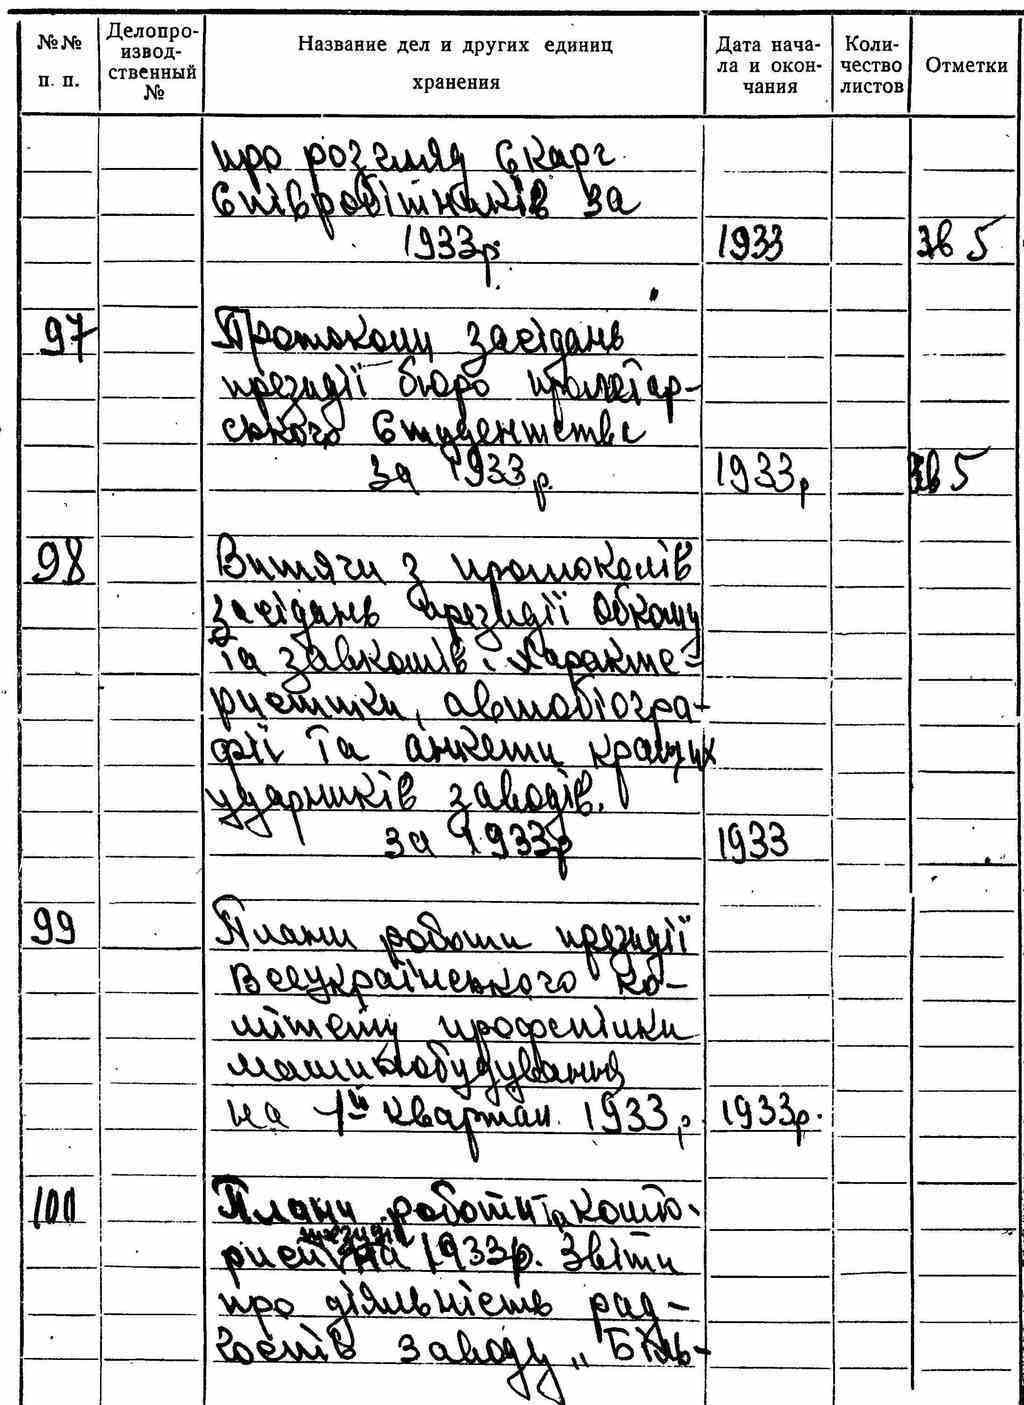 №№ п. п.
Делопро-
извод-
ственный
№
Название дел и других единиц
хранения
Дата нача-
ла и окон-
чания
Коли-
чество
листов
Отметки
про розгляд скарг
співробітників за
1933р. 1933 5
97 Протоколи засідань
президії бюро пролетар-
ського студентства
за 1933р. 1933р 5
98 Витяги з протоколів
засідань президії обкому
та завкомів. Характе-
ристики, автобіогра-
фії та анкети кращих
ударників заводів.
за 1933р 1933
99 Плани роботи президії
Всеукраїнського ко-
мітету профспілки
машинобудування
на 1й квартал 1933р 1933р.
100 Плани роботи та кошто-
президії
риси на 1933р. Звіти
про діяльність рад-
госпів заводу „Біль-